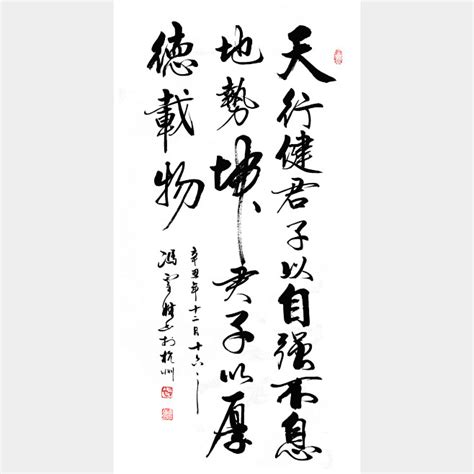 天行健君子以自强不息
地勢坤君子以厚
德載物
辛丑年十二月十六
馮雪峰书於杭州